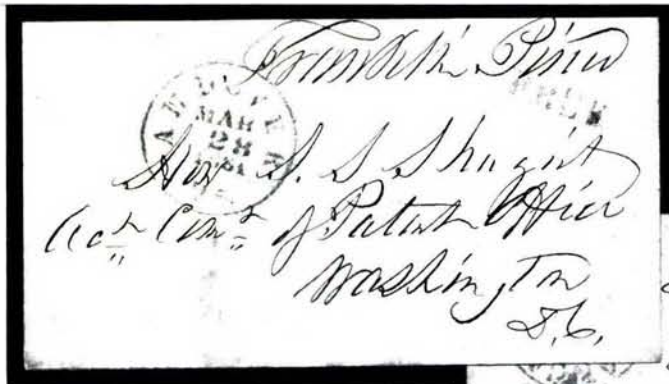 Franklin Pierce
ANDOVER
MAR
28
FREE
Hon S. T. Shugert
Act. Com.r of Patent Office
Washington
D.C.